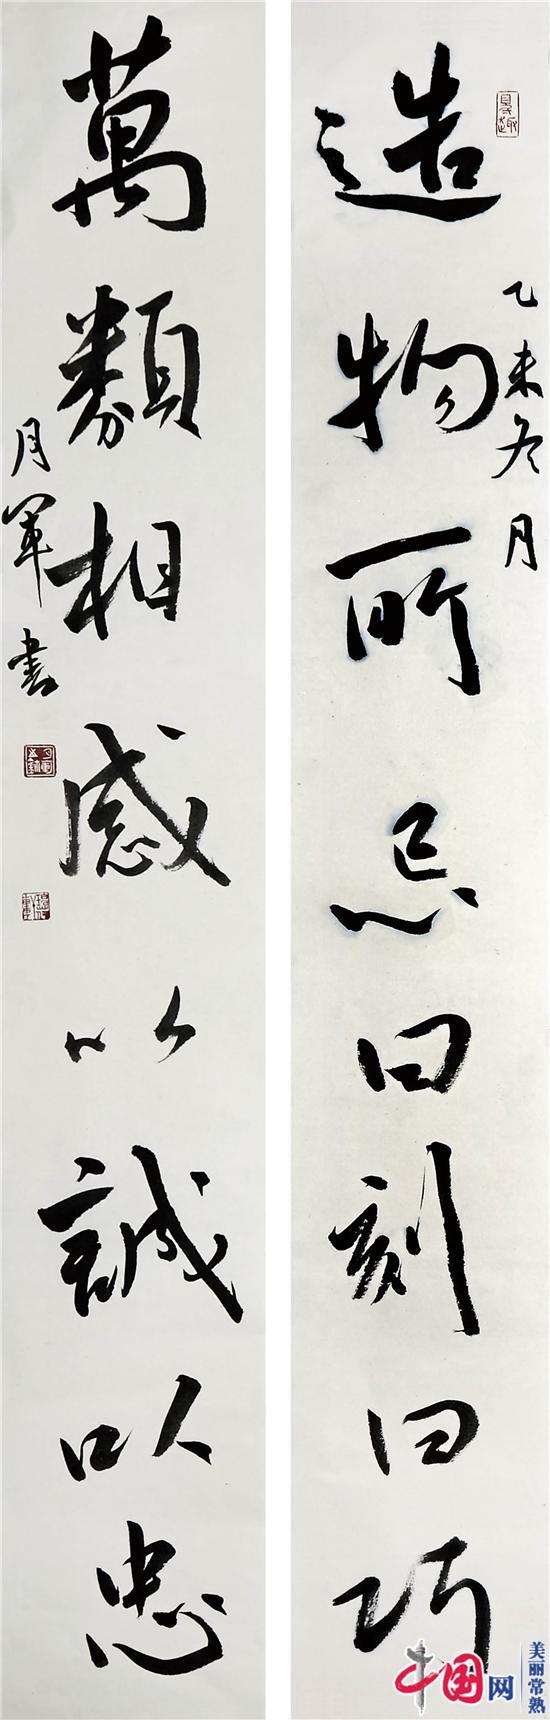 造物所忌曰刻曰巧
乙未冬月
萬類相感以誠以忠
月軍書
中国网
美丽常熟